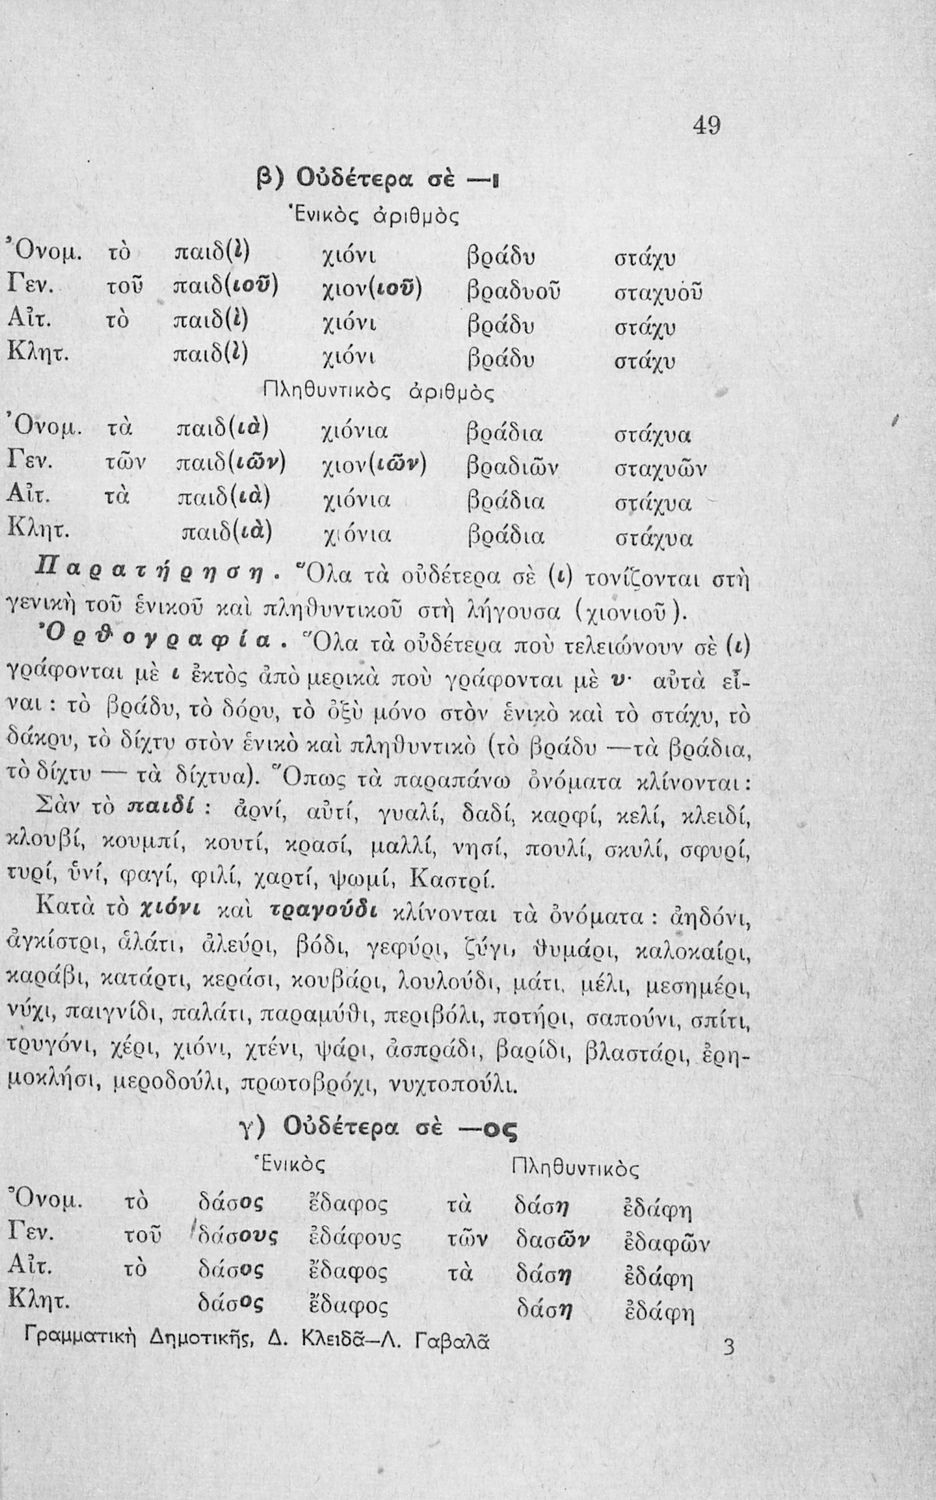 49
β) Οὐδέτερα σὲ —ι
Ἑνικὸς ἀριθμὸς
Ὀνομ. τὸ παιδ(ὶ) χιόνι βράδυ στάχυ
Γεν. τοῦ παιδ(ιοῦ) χιον(ιοῦ) βραδυοῦ σταχυοῦ
Αἰτ. τὸ παιδ(ὶ) χιόνι βράδυ στάχυ
Κλητ. παιδ(ὶ) χιόνι βράδυ στάχυ
Πληθυντικὸς ἀριθμὸς
Ὀνομ. τὰ παιδ(ιὰ) χιόνια βράδια στάχυα
Γεν. τῶν παιδ(ιῶν) χιον(ιῶν) βραδιῶν σταχυῶν
Αἰτ. τὰ παιδ(ιὰ) χιόνια βράδια στάχυα
Κλητ. παιδ(ιὰ) χιόνια βράδια στάχυα
Παρατήρηση. Ὅλα τὰ οὐδέτερα σὲ (ι) τονίζονται στὴ
γενικὴ τοῦ ἑνικοῦ καὶ πληθυντικοῦ στὴ λήγουσα (χιονιοῦ).
Ὀρθογραφία. Ὅλα τὰ οὐδέτερα ποὺ τελειώνουν σὲ (ι)
γράφονται μὲ ι ἐκτὸς ἀπὸ μερικὰ ποὺ γράφονται μὲ υ· αὐτὰ εἶ-
ναι : τὸ βράδυ, τὸ δόρυ, τὸ ὀξὺ μόνο στὸν ἑνικὸ καὶ τὸ στάχυ, τὸ
δάκρυ, τὸ δίχτυ στὸν ἑνικὸ καὶ πληθυντικὸ (τὸ βράδυ —τὰ βράδια,
τὸ δίχτυ — τὰ δίχτυα). Ὅπως τὰ παραπάνω ὀνόματα κλίνονται :
Σὰν τὸ παιδί : ἀρνί, αὐτί, γυαλί, δαδί, καρφί, κελί, κλειδί,
κλουβί, κουμπί, κουτί, κρασί, μαλλί, νησί, πουλί, σκυλί, σφυρί,
τυρί, ὑνί, φαγί, φιλί, χαρτί, ψωμί, Καστρί.
Κατὰ τὸ χιόνι καὶ τραγούδι κλίνονται τὰ ὀνόματα : ἀηδόνι,
ἀγκίστρι, ἁλάτι, ἀλεύρι, βόδι, γεφύρι, ζύγι, θυμάρι, καλοκαίρι,
καράβι, κατάρτι, κεράσι, κουβάρι, λουλούδι, μάτι, μέλι, μεσημέρι,
νύχι, παιγνίδι, παλάτι, παραμύθι, περιβόλι, ποτήρι, σαπούνι, σπίτι,
τρυγόνι, χέρι, χιόνι, χτένι, ψάρι, ἀσπράδι, βαρίδι, βλαστάρι, ἐρη-
μοκλήσι, μεροδούλι, πρωτοβρόχι, νυχτοπούλι.
γ) Οὐδέτερα σὲ —ος
Ἑνικὸς Πληθυντικὸς
Ὀνομ. τὸ δάσος ἔδαφος τὰ δάση ἐδάφη
Γεν. τοῦ δάσους ἐδάφους τῶν δασῶν ἐδαφῶν
Αἰτ. τὸ δάσος ἔδαφος τὰ δάση ἐδάφη
Κλητ. δάσος ἔδαφος δάση ἐδάφη
Γραμματικὴ Δημοτικῆς, Δ. Κλειδᾶ—Λ. Γαβαλᾶ 3